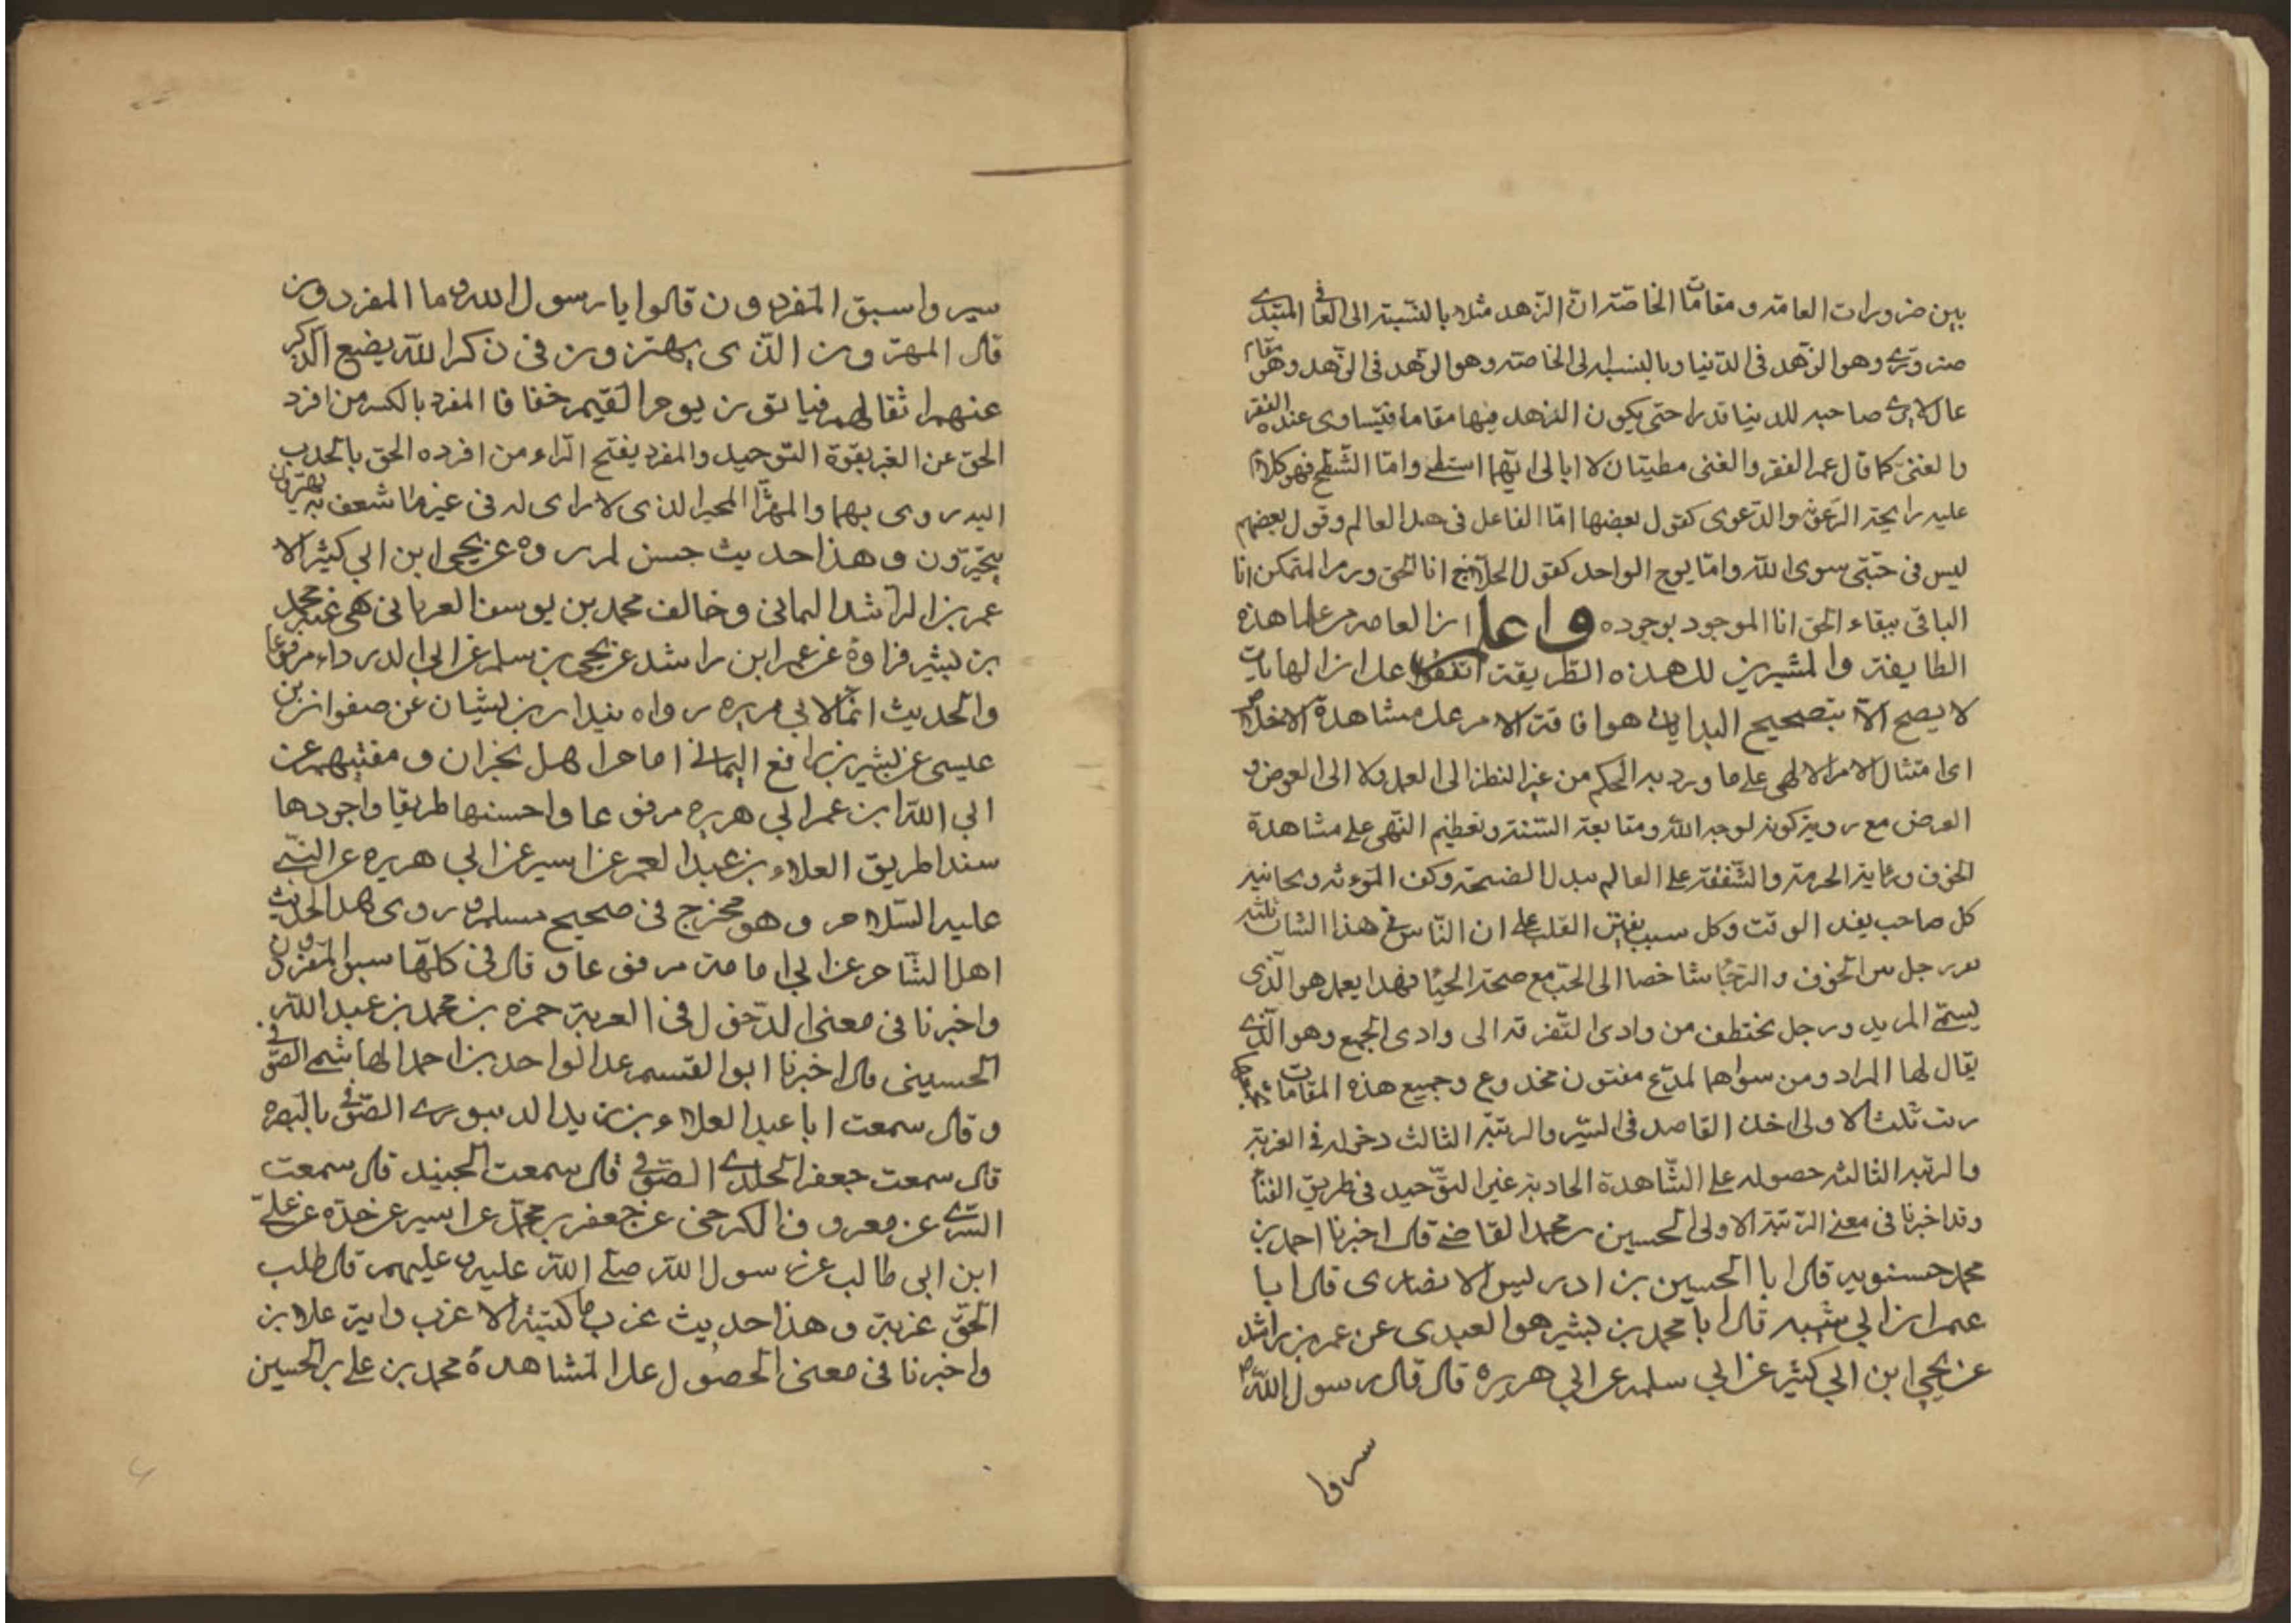 بين ضرورات العامة ومقامات الخاصة ان الزهد مثلا بالنسبة الى العا فى المبتدى
ضروری وهو الزهد فى الدنيا وبالنسبة لى الخاصة وهو الزهد فى الزهد وهو مقام
عال لايرى صاحبه للدنيا قدرا حتى يكون الزهد فيها مقاما فيتساوى عنده الفقر
والغنى كما قال عمر الفقر والغنى مطيتان لا ابالى ايهما استطى واما الشطح فهو كلام
عليه رايحة الرعونة والدعوى كقول بعضها انا الفاعل فى هذا العالم وقول بعضهم
ليس فى جبتى سوى الله وانا يوح الواحد كقول الحلاج انا الحق ورمز المتمكن انا
الباقى ببقاء الحق انا الموجود بوجوده واعلم ان العامة من علما هذه
الطايفة والمشيرين لهذه الطريقة اتفقوا على ان النهايات
لا يصح الا بتصحيح البدايات هو اقامة الامر على مشاهدة الاخلاص
اى امتثال الامر الالهى على ما ورد به الحكم من غير النظر الى العمل ولا الى العوض و
العرض مع روية كونه لوجه الله ومتابعة السنة وتعظيم النهى على مشاهدة
الخوف ورعاية الحرمة والشفقة على العالم ببدل النصيحة وكف المؤنة ومجانبة
كل صاحب يفسد الوقت وكل سبب يفتن القلب على ان الناس فى هذا الشان ثلثة
نفر رجل بين الخوف والرجا شاخصا الى الحب مع صحة الحيا فهذا يعمل هو الذى
يسمى المريد ورجل مختطف من وادى التفرقة الى وادى الجمع وهو الذى
يقال لها المراد ومن سواهما لمدع مفتون مخدوع وجميع هذه المقامات
رتب ثلث الاولى اخذ القاصد فى السير والرتبة الثالث دخوله فى الغربة
والرتبة الثالثة حصوله على الشاهدة الجاذبة غير التوحيد فى طريق الفنا
وقد اخبرنا فى معنى الرتبة الاولى الحسين بن محمد القاضى قال اخبرنا احمد بن
محمد حسنويه قال ابا الحسين بن ادريس الانصارى قال ابا
عمر ابن ابي شيبه قال ابا محمد بن بشير هو العبدى عن عمر بن راشد
عن يحيى ابن ابي كثير عن ابي سلمه عن ابي هريره قال قال رسول الله ص
سيروا
سيروا سبق المفردون قالوا يا رسول الله وما المفردون
قال المهترون الذى يهتزون فى ذكر الله يضع الذكر
عنهم اثقالهم فياتون يوم القيمة خفافا المفرد بالكسر من افرد
الحق عن الغير بقوة التوحيد والمفرد بفتح الراء من افرده الحق بالجذب
اليه روى بهما والمهتر المحير الذى لا راى له فى غير ما شعف به يهترون
يتحيرون وهذا حديث حسن لم يروه عن يحيى ابن ابي كثير الا
عمر بن الراشد اليمانى وخالف محمد بن يوسف العرباني فى غير محمد
بن بشير فرواه عن عمر ابن راشد عن يحيى بن سلمه عن ابي الدرداء مرفوعا
والحديث انما لابي هريره رواه بندار بن بشيان عن صفوان بن
عيسى عن بشير بن رافع اليمانى امام اهل نجران ومفتيهم عن
ابي الله ابن عمر ابي هريره مرفوعا واحسنها طريقا واجودها
سندا طريق العلاء بن عبد العمر عن ابيه عن ابي هريره عن النبى
عليه السلام وهو مخرج فى صحيح مسلم وروى هذا الحديث
اهل الشام عن ابي امامة مرفوعا وقال فى كلها سبق المفردون
واخبرنا فى معنى الدخول فى الغربة حمزه بن محمد بن عبد الله
الحسينى قال اخبرنا ابو القسم عبد الواحد بن احمد الهاشمى الصوفى
وقال سمعت ابا عبد العلاء بن زيد الدينورى الصوفى بالبصره
قال سمعت جعفر الخلدى الصوفى قال سمعت الجنيد قال سمعت
السرى عن معروف الكرخى عن جعفر بن محمد عن ابيه عن جده عن على
ابن ابى طالب عن رسول الله صلى الله عليه وعليهم قال طلب
الحق غربة وهذا حديث غريب ما كتبته الا غرب واية علا بن
واخبرنا فى معنى الحصول على المشاهدة محمد بن على بن الحسين